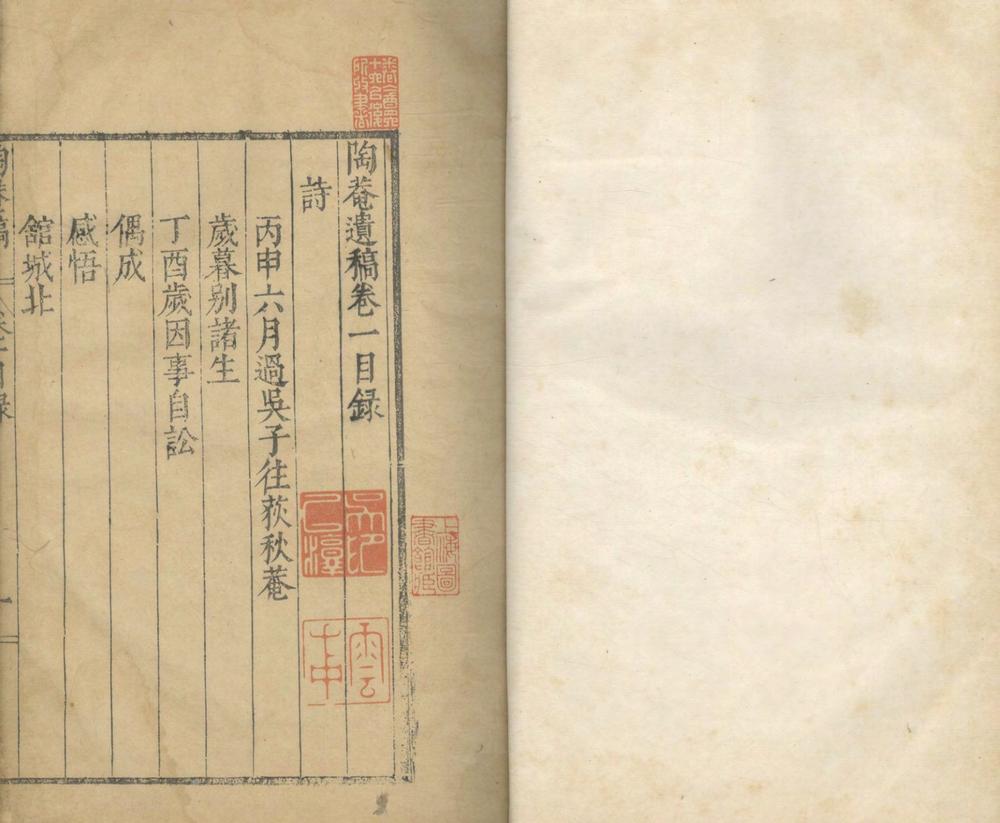 陶菴遺稿卷一目録
詩
丙申六月過吳子往荻秋菴
歲暮别諸生
丁酉歲因事自訟
偶成
感悟
舘城北
上海圖書館藏
雲中